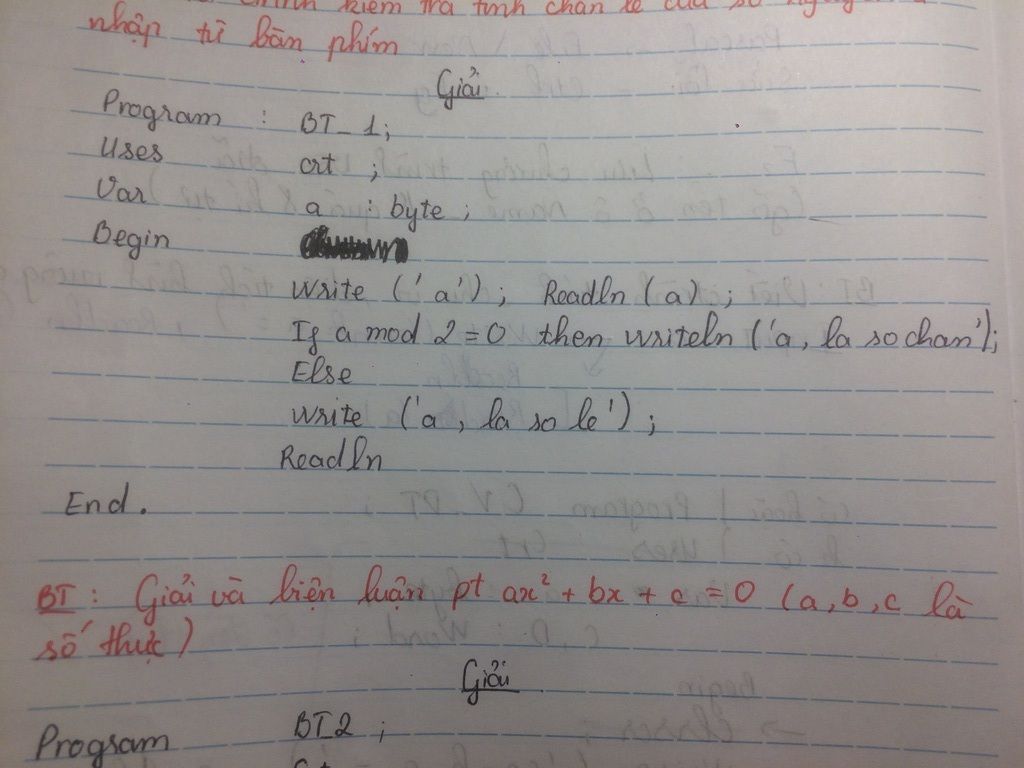 chình kiểm tra tính chẵn lẻ của số nguyên a
nhập từ bàn phím
Giải
Program : BT_1;
Uses crt ;
Var a : byte ;
Begin
write ('a'); Readln (a) ;
If a mod 2=0 then writeln ('a, la so chan');
Else
write ('a, la so le') ;
Readln
End.
BT : Giải và biện luận pt ax² + bx + c = 0 (a, b, c là
số thực)
Giải
Program BT2 ;